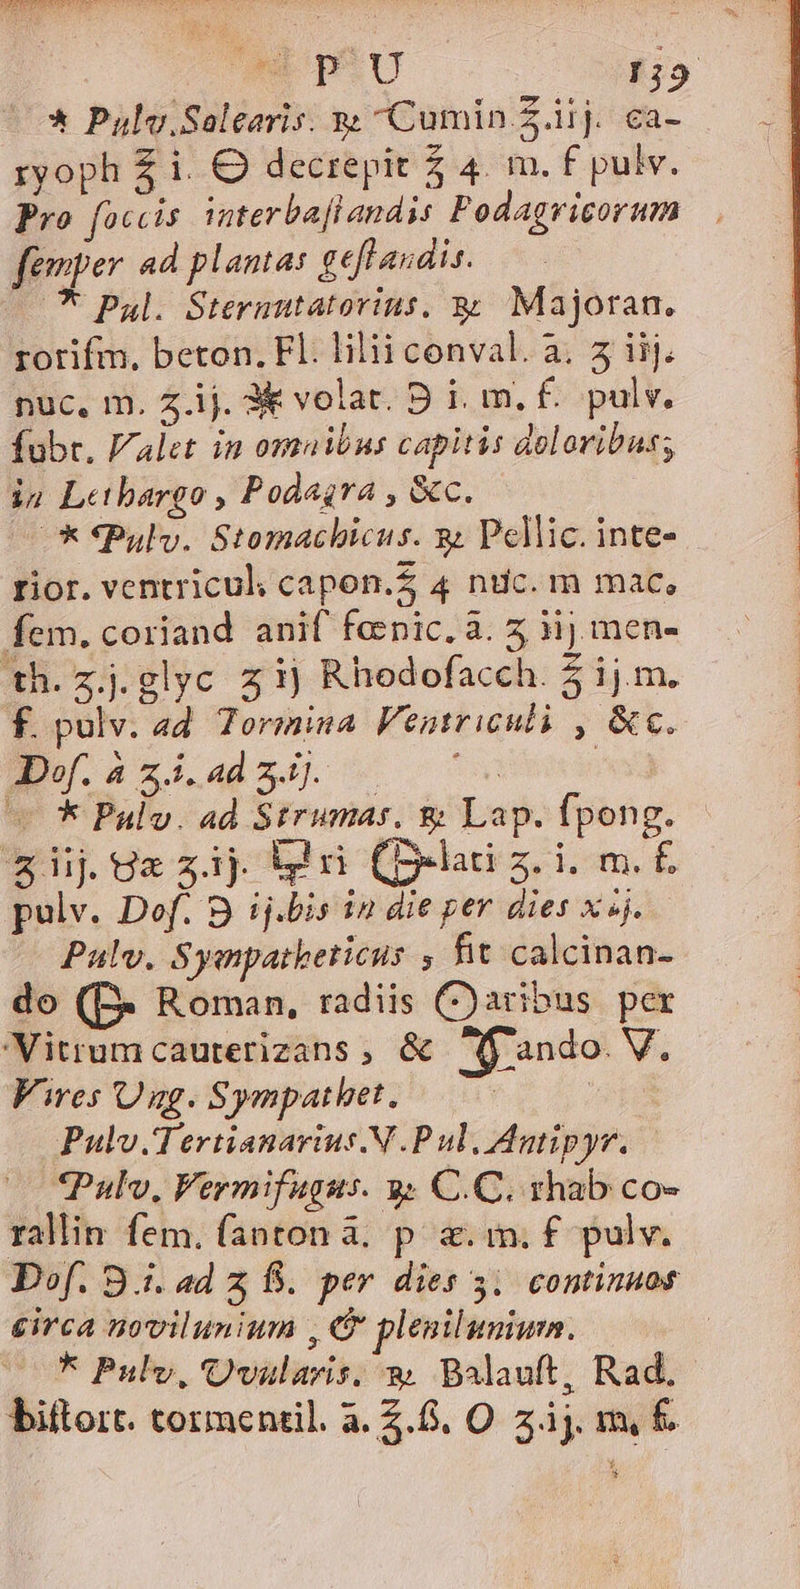 PU 139
* Pulv.Solearis. ℞ Cumin ℥.iij. ca-
ryoph ℥ i. 🜔 decrepit ℥ 4. m. f pulv.
Pro soccis interbastandis Podagricorum
semper ad plantas gestandis.
* Pul. Sternutatorius. ℞ Majoran.
rorism. beton. Fl. lilii conval. ā. ʒ iij.
nuc. m. ʒ.ij. 🜹 volat. ℈ i. m. f. pulv.
subt. Valet in omnibus capitis doloribus;
in Lethargo, Podagra, &c.
* Pulv. Stomachicus. ℞ Pellic. inte-
rior. ventricul. capon. ℥ 4 nuc. m mac.
sem. coriand anis fœnic. ā. ʒ iij men-
th. ʒ.j. glyc ʒ ij Rhodosacch. ℥ ij. m.
f. pulv. ad Tormina Ventriculi, &c.
Dos. à ʒ.i. ad ʒ.ij.
* Pulv. ad Strumas. ℞ Lap. spong.
ʒ iij. ʒ.ij. ri lati ʒ. i. m. f.
pulv. Dos. ℈ ij. bis in die per dies xij.
Pulv. Sympatheticus, fit calcinan-
do Roman. radiis ☉aribus per
Vitrum cauterizans, & ando. V.
Vires Ung. Sympathet.
Pulv. Tertianarius. V. Pul. Antipyr.
Pulv. Vermifugus. ℞ C.C. rhab co-
rallin sem. santon ā. p æ. m. f pulv.
Dos. ℈.i. ad ʒ ß. per dies 3. continuos
circa novilunium, & plenilunium.
* Pulv. Uvularis. ℞ Balaust, Rad.
bistort. tormentil. ā. ℥.ß. O ʒ.ij. m. f.